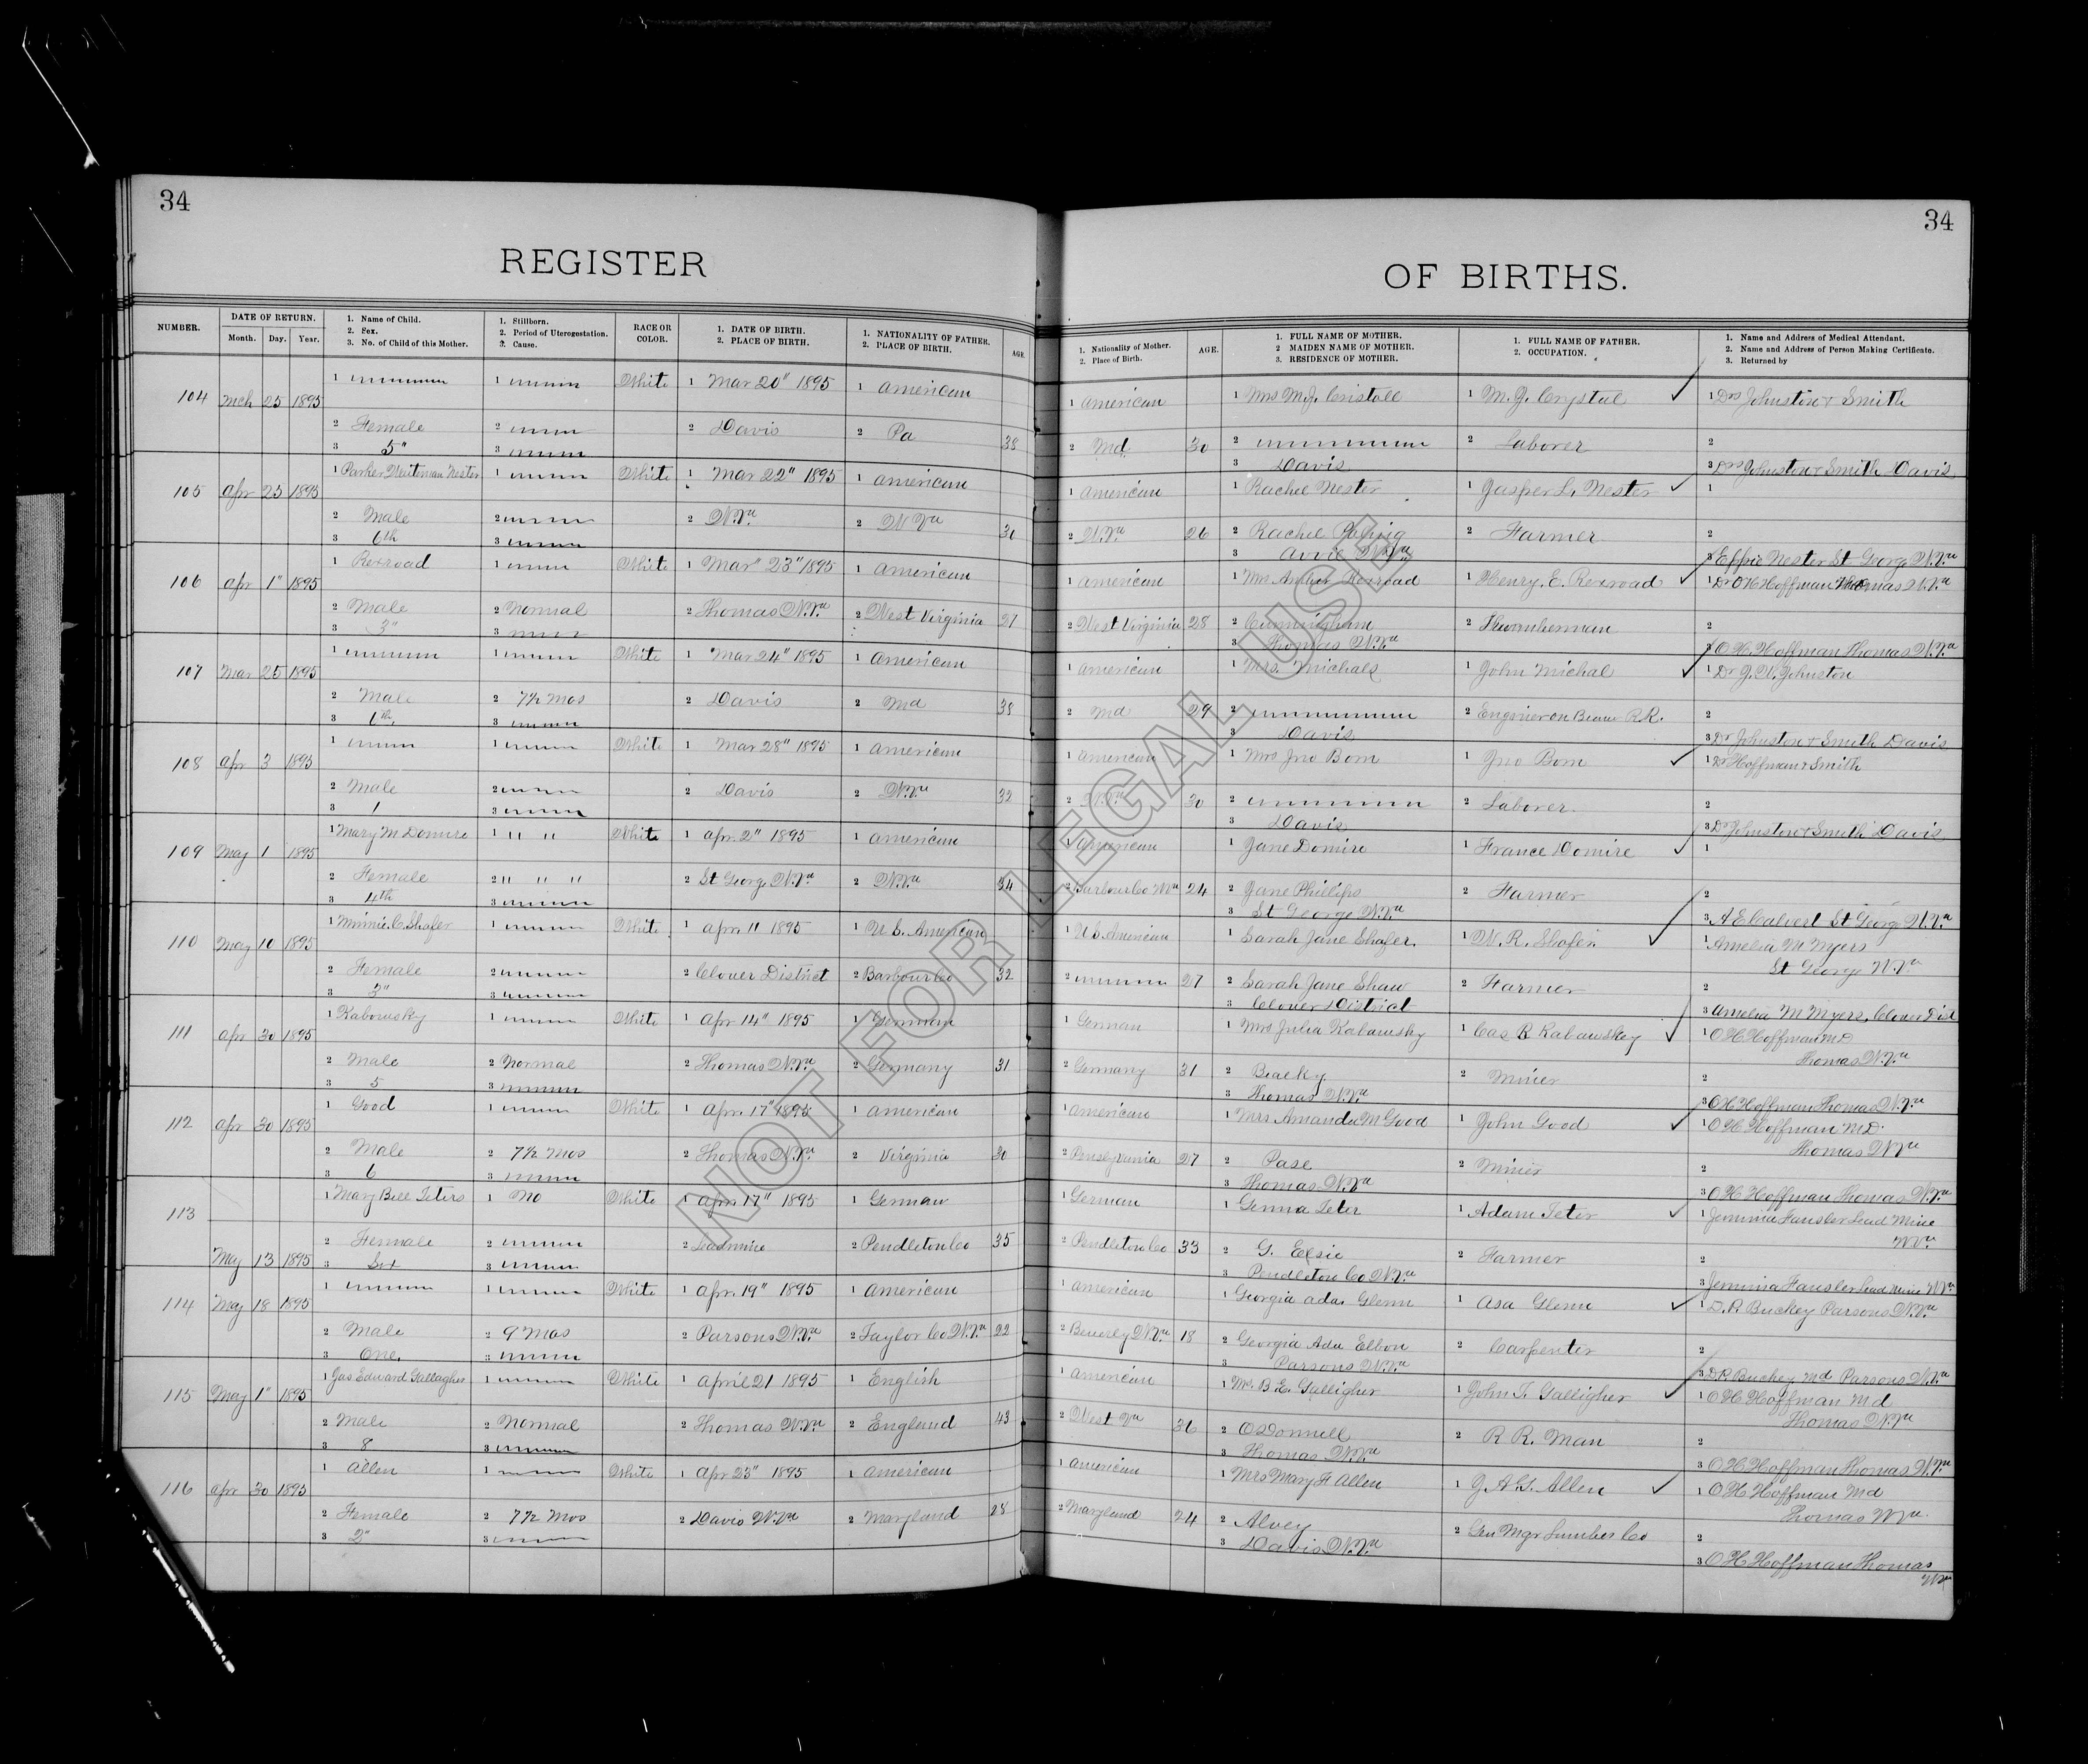 34
34
REGISTER
OF BIRTHS.
NUMBER.
DATE OF RETURN.
Month. Day. Year.
1. Name of Child.
2. Sex.
3. No. of Child of this Mother.
1. Stillborn.
2. Period of Uterogestation.
3. Cause.
RACE OR
COLOR.
1. DATE OF BIRTH.
2. PLACE OF BIRTH.
1. NATIONALITY OF FATHER.
2. PLACE OF BIRTH.
AGE.
1. Nationality of Mother.
2. Place of Birth.
AGE.
1. FULL NAME OF MOTHER.
2 MAIDEN NAME OF MOTHER.
3. RESIDENCE OF MOTHER.
1. FULL NAME OF FATHER.
2. OCCUPATION.
1. Name and Address of Medical Attendant.
2. Name and Address of Person Making Certificate.
3. Returned by
104 Mch 25 1895 1 1 White 1 Mar 20" 1895 1 American 1 American 1 Mrs M.J. Cristall 1 M.J. Crystal 1 Drs Johnston & Smith
2 Female 2 2 Davis 2 Pa 38 2 Md 30 2 2 Laborer 2
3 5" 3 3 Davis 3 Drs Johnston & Smith Davis
105 Apr 25 1895 1 Parker Nester 1 White 1 Mar 22" 1895 1 American 1 American 1 Rachel Nester 1 Jasper L. Nester 1
2 Male 2 2 W.Va 2 W Va 31 2 W.Va 26 2 Rachel 2 Farmer 2
3 6th 3 3 W.Va 3 Effie Nester St George W.Va
106 Apr 1" 1895 1 Rexroad 1 White 1 Mar" 23" 1895 1 American 1 American 1 Rexroad 1 Henry. E. Rexroad 1 Dr O H Hoffman Thomas W.Va
2 Male 2 Normal 2 Thomas W.Va 2 West Virginia 27 2 West Virginia 28 2 Cunningham 2 2
3 3" 3 3 Thomas W.Va 3 O.H. Hoffman Thomas W.Va
107 Mar 25 1895 1 1 White 1 Mar 24" 1895 1 American 1 American 1 Mrs. Michals 1 John Michal 1 Dr J. W. Johnston
2 Male 2 7½ Mos 2 Davis 2 Md 38 2 Md 29 2 2 Engineer on R.R. 2
3 3 3 Davis 3 Dr Johnston & Smith Davis
108 Apr 3 1895 1 1 White 1 Mar 28" 1895 1 American 1 American 1 Mrs Jno Bom 1 Jno Bom 1 Dr Hoffman & Smith
2 Male 2 2 Davis 2 W.Va 32 2 W.Va 30 2 2 Laborer 2
3 1 3 3 Davis 3 Dr Johnston & Smith Davis
109 May 1 1895 1 Mary M Domire 1 " " White 1 Apr. 2" 1895 1 American 1 American 1 Jane Domire 1 France Domire 1
2 Female 2 " " " 2 St Georg W.Va 2 W.Va 34 2 Barbour Co W Va 24 2 Jane Phillips 2 Farmer 2
3 4th 3 3 St George W.Va 3 A E Calvert St Georg W.Va
110 May 10 1895 1 Minnie. C. Shafer 1 White 1 Apr. 11 1895 1 U.S. American 1 U S. American 1 Sarah Jane Shafer. 1 W. R. Shafer. 1 Amelia M Myers
St George W.Va
2 Female 2 2 Clover District 2 Barbour Co 32 2 27 2 Sarah Jane Shaw 2 Farmer 2
3 3" 3 3 Clover District 3 Amelia M Myers, Clover Dist
111 Apr 30 1895 1 Kabowsky 1 White 1 Apr 14" 1895 1 German 1 German 1 Mrs Julia Kabawsky 1 Cas B Kabawskey 1 O H Hoffman M D
Thomas W.Va
2 Male 2 Normal 2 Thomas W.Va 2 Germany 31 2 Germany 31 2 2 Miner 2
3 5 3 3 Thomas W.Va 3 O H Hoffman Thomas W.Va
112 Apr 30 1895 1 Good 1 White 1 Apr. 17" 1895 1 American 1 American 1 Mrs Amanda M Good 1 John Good 1 O H Hoffman M D.
Thomas W Va
2 Male 2 7½ Mos 2 Thomas W.Va 2 Virginia 30 2 Penslyvania 27 2 Pase 2 Miner 2
3 6 3 3 Thomas W.Va 3 O H Hoffman Thomas W.Va
113 1 Mary Bell Teters 1 No White 1 Apr. 17" 1895 1 German 1 German 1 Teter 1 Adam Teter 1 Jemima Fansler Lead Mine
W Va
2 Female 2 2 Leadmine 2 Pendleton Co 35 2 Pendleton Co 33 2 G. Elsie 2 Farmer 2
May 13 1895 3 Six 3 3 Pendleton Co W.Va 3 Jemima Fansler Lead Mine W Va
114 May 18 1895 1 1 White 1 Apr. 19" 1895 1 American 1 American 1 Georgia Ada. Glenn 1 Asa Glenn 1 D. P. Buckey Parsons W.Va
2 Male 2 9 Mos 2 Parsons W.Va 2 Taylor Co W.Va 22 2 Beverly W.Va 18 2 Georgia Ada Elbon 2 Carpenter 2
3 One. 3 3 Parsons W.Va 3 D.P. Buckey Md Parsons W.Va
115 May 1" 1895 1 Jas Edward Gallagher 1 White 1 April 21 1895 1 English 1 American 1 Mr. B. E. Galligher 1 John T. Galligher 1 O H Hoffman Md
Thomas W.Va
2 Male 2 Normal 2 Thomas W.Va 2 England 43 2 West Va 36 2 O Donnell 2 R R. Man 2
3 8 3 3 Thomas W.Va 3 O H Hoffman Thomas W.Va
116 Apr 30 1895 1 Allen 1 White 1 Apr 23" 1895 1 American 1 American 1 Mrs Mary F Allen 1 J. A G. Allen 1 O H Hoffman Md
Thomas W Va.
2 Female 2 7½ Mos 2 Davis W.Va 2 Maryland 28 2 Maryland 24 2 Alvey 2 Gen Mgr Lumber Co 2
3 2" 3 3 Davis W.Va 3 O H Hoffman Thomas
W Va
NOT FOR LEGAL USE